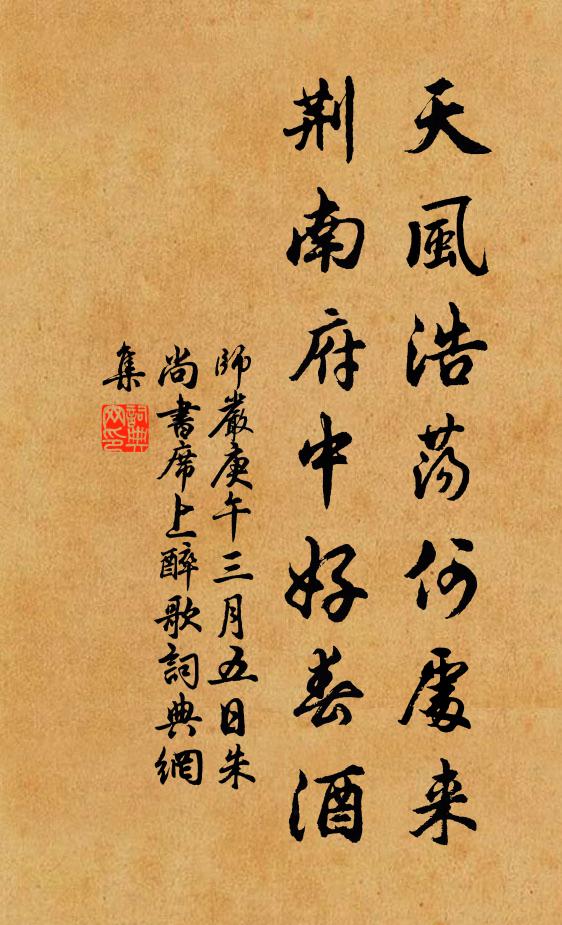 天風浩蕩何處来
荆南府中好春酒
師嚴庚午三月五日朱
尚書席上醉歌詞典網
集
詞典網印